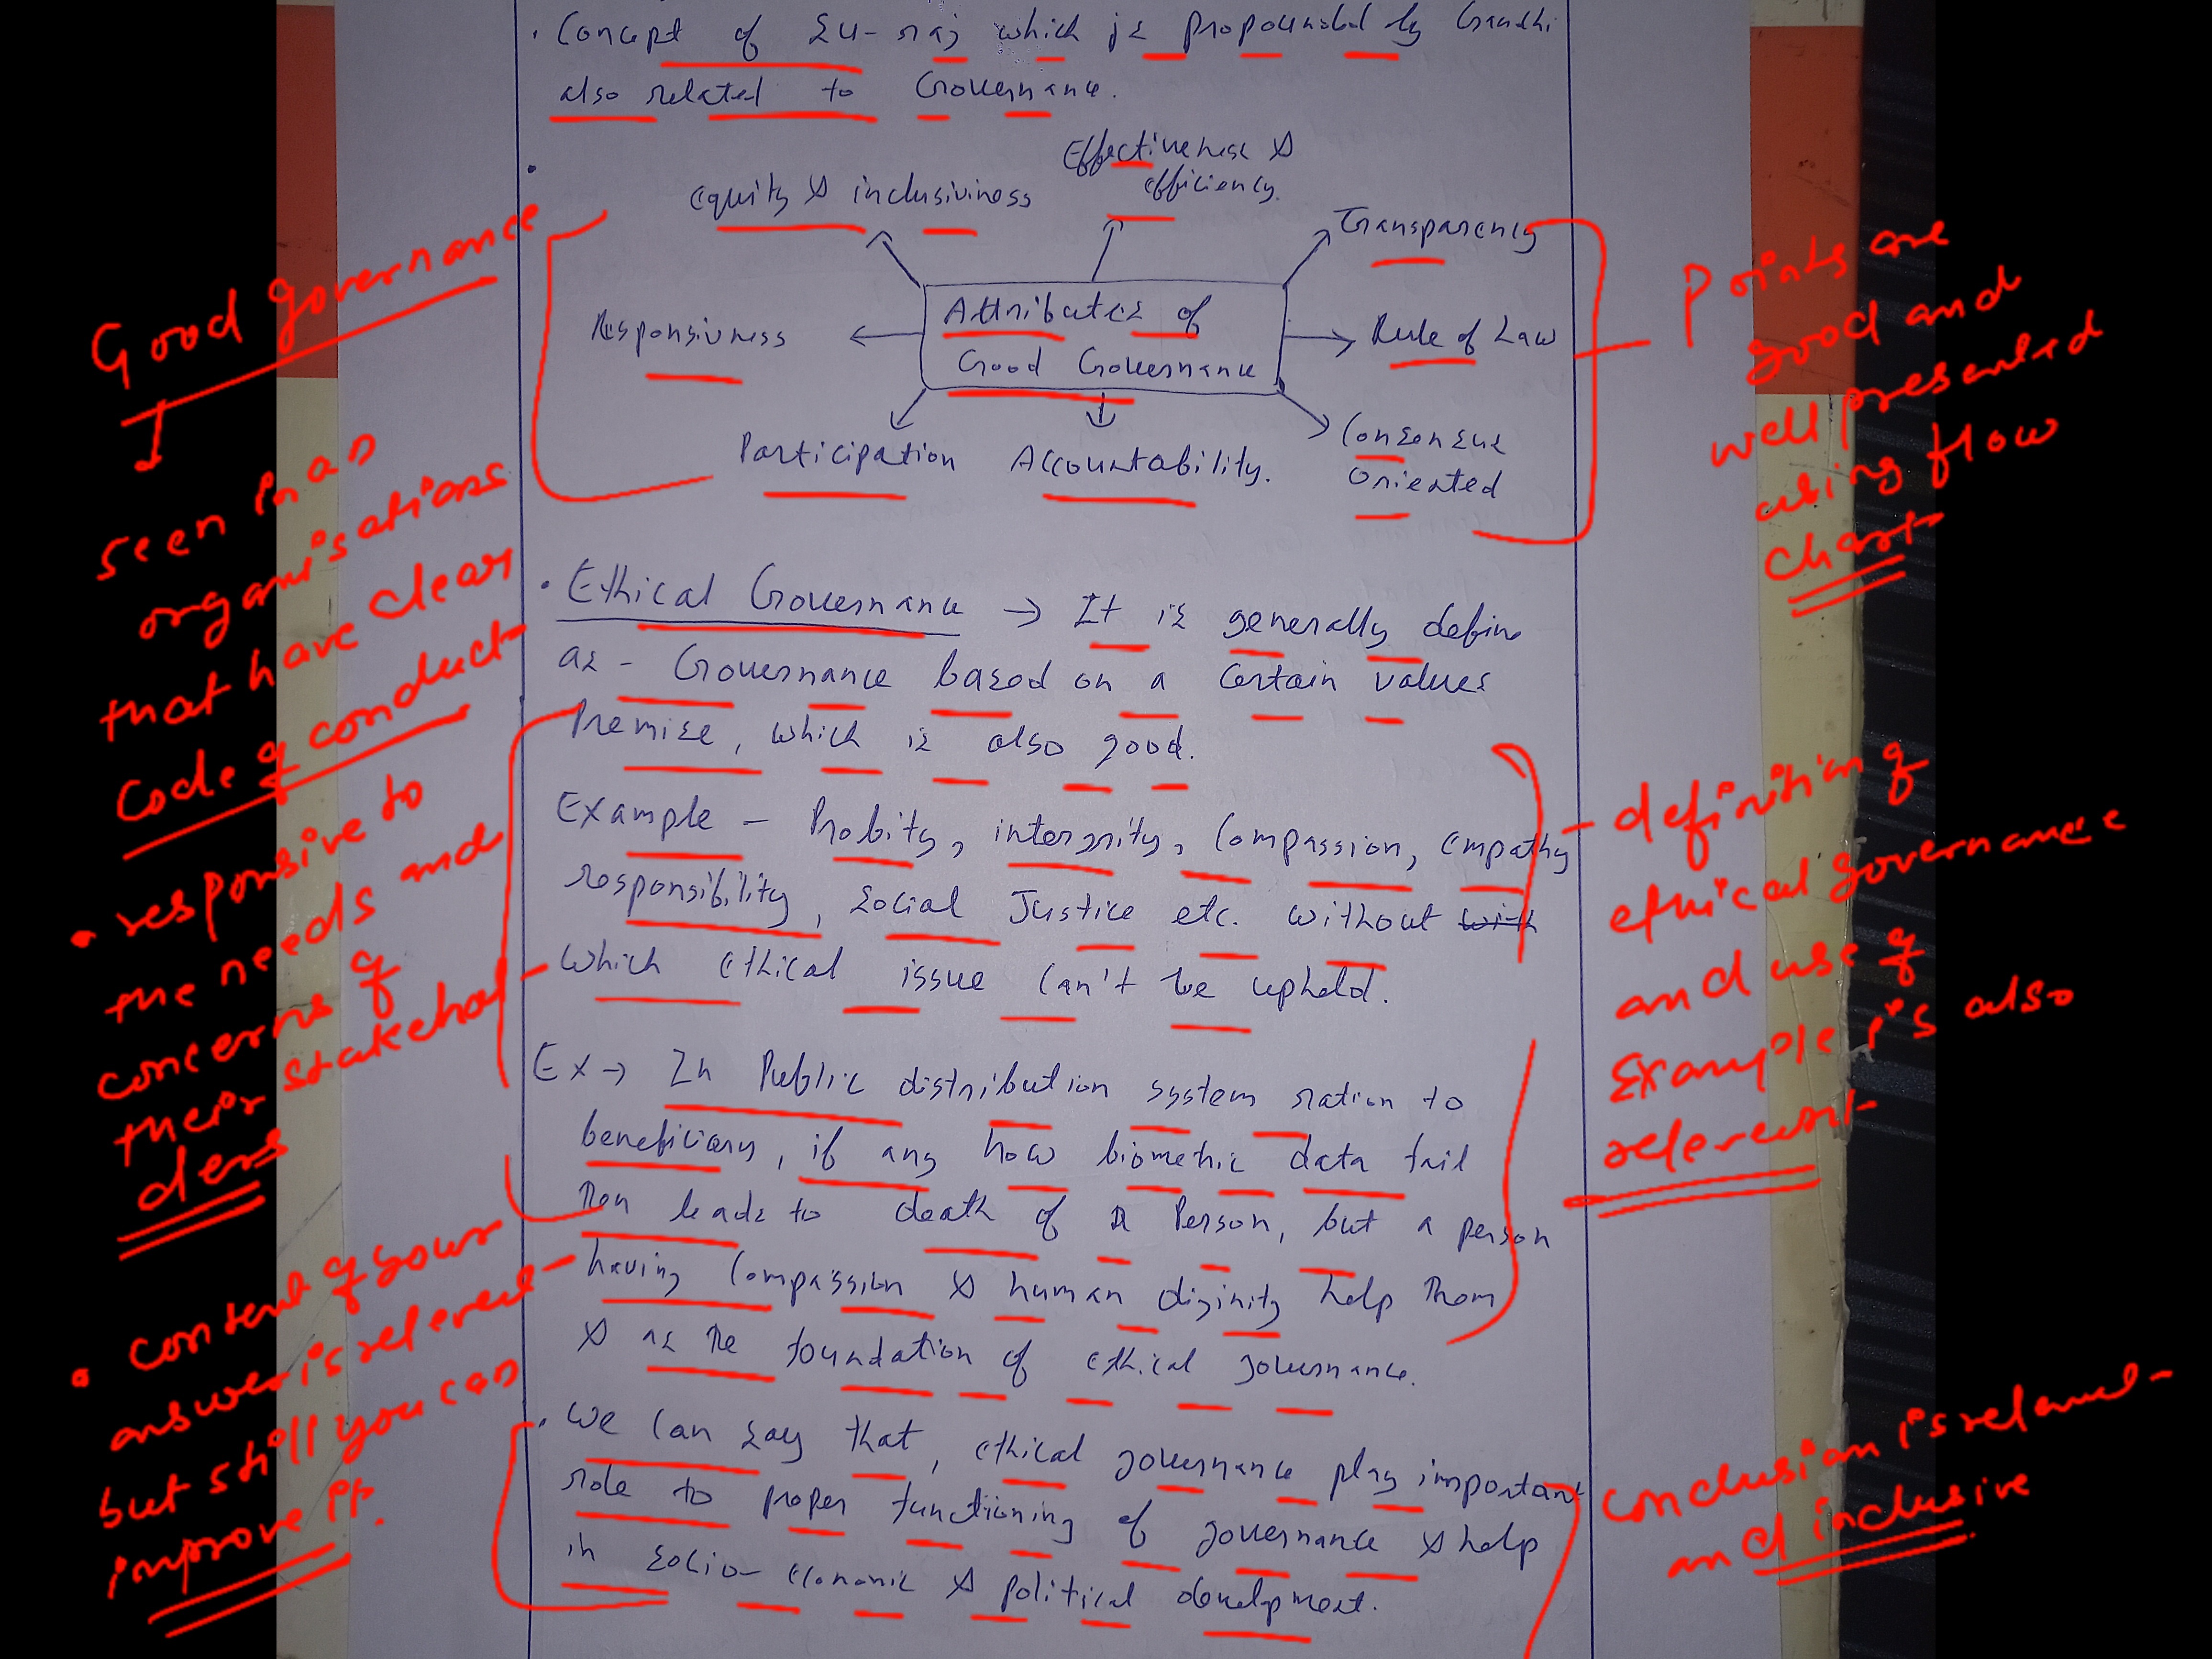 • Concept of Su-raj which is propounded by Gandhi
also related to Governance.
•
Effectiveness &
efficiency.
equity & inclusiviness
Transparency
Attributes of
Good Governance
Responsivness
Rule of Law
Participation
Accountability.
Consensus
Oriented
• Ethical Governance → It is generally define
as - Governance based on a certain values
Premise, which is also good.
Example - Probity, intergrity, Compassion, empathy
responsibility, Social Justice etc. without with
which ethical issue can't be uphold.
Ex → In Public distribution system ration to
beneficiary, if any how biometric data fail
then leads to death of a Person, but a person
having Compassion & human diginity help them
& as the foundation of ethical governance.
• We can say that, ethical governance play important
role to proper functioning of governance & help
in socio-economic & political development.
Good governance
↓
seen in as
organisations
that have clear
code of conduct
• responsive to
the needs and
concerns of
their stakehol-
ders
• content of your
answer is relevent
but still you can
improve it.
Points are
good and
well presented
using flow
chart
definition of
ethical governance
and use of
Example is also
relevent
conclusion is relevent
and inclusive